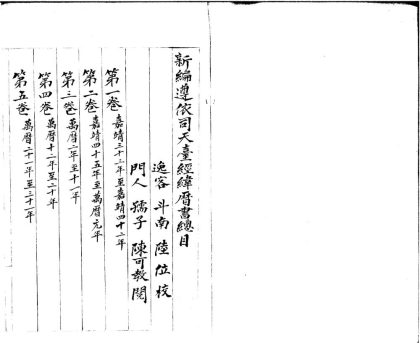 新編遵依司天臺經緯曆書總目
逸客 斗南 陸位 校
門人 孺子 陳可教 閱
第一卷 嘉靖三十三年至嘉靖四十三年
第二卷 嘉靖四十五年至萬曆元年
第三卷 萬曆二年至十一年
第四卷 萬曆十二年至二十年
第五卷 萬曆二十一年至三十一年